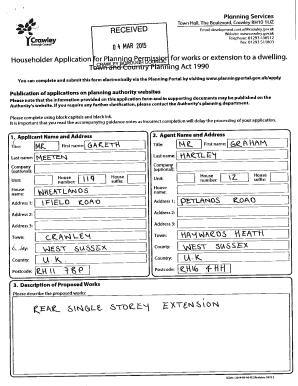 Crawley
Borough Council
RECEIVED
04 MAR 2015
Planning Services
Town Hall, The Boulevard, Crawley RH10 1UZ
Householder Application for Planning Permission for works or extension to a dwelling.
Town and Country Planning Act 1990
You can complete and submit this form electronically via the Planning Portal by visiting www.planningportal.gov.uk/apply
Publication of applications on planning authority websites
Please note that the information provided on this application form and in supporting documents may be published on the
Authority's website. If you require any further clarification, please contact the Authority's planning department.
Please complete using block capitals and black ink.
It is important that you read the accompanying guidance notes as incorrect completion will delay the processing of your application.
1. Applicant Name and Address
Title: MR First name: GARETH
Last name: MEETEN
Company (optional):
Unit: House number: 119 House suffix:
House name: WHEATLANDS
Address 1: IFIELD ROAD
Address 2:
Address 3:
Town: CRAWLEY
WEST SUSSEX
Country: UK
Postcode: RH11 7BP
2. Agent Name and Address
Title: MR First name: GRAHAM
Last name: HARTLEY
Company (optional):
Unit: House number: 12 House suffix:
House name:
Address 1: PETLANDS ROAD
Address 2:
Address 3:
Town: HAYWARDS HEATH
County: WEST SUSSEX
Country: UK
Postcode: RH16 4HH
3. Description of Proposed Works
Please describe the proposed works:
REAR SINGLE STOREY EXTENSION